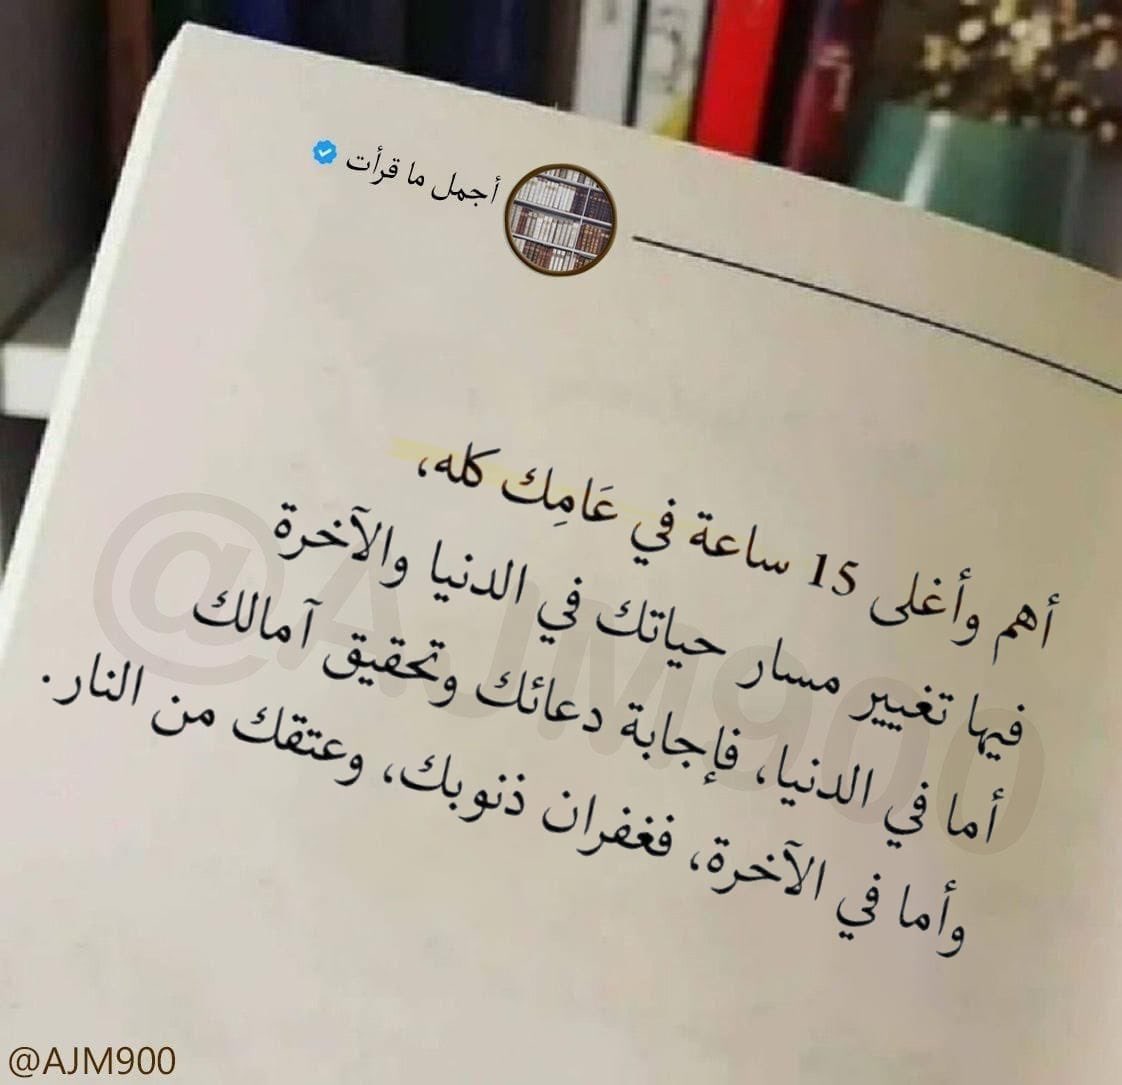 أجمل ما قرأت
أهم وأغلى 15 ساعة في عَامِك كله،
فيها تغيير مسار حياتك في الدنيا والآخرة
أما في الدنيا، فإجابة دعائك وتحقيق آمالك
وأما في الآخرة، فغفران ذنوبك، وعتقك من النار.
@AJM900
@AJM900